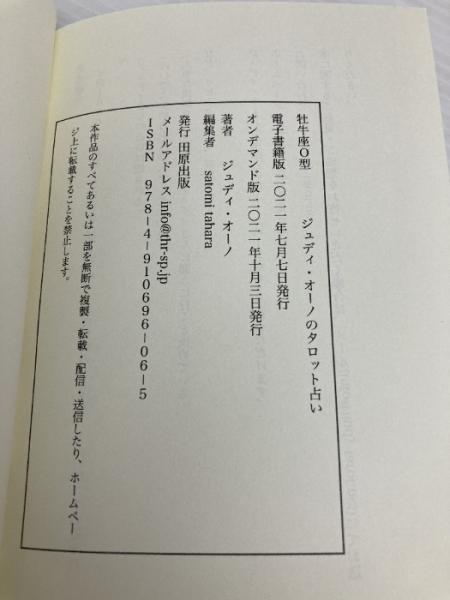 牡牛座O型　ジュディ・オーノのタロット占い
電子書籍版 二〇二一年七月七日発行
オンデマンド版 二〇二一年十月三日発行
著者　ジュディ・オーノ
編集者　satomi tahara
発行 田原出版
メールアドレス info@thr-sp.jp
ISBN　978-4-910696-06-5
本作品のすべてあるいは一部を無断で複製・転載・配信・送信したり、ホームペー
ジ上に転載することを禁止します。